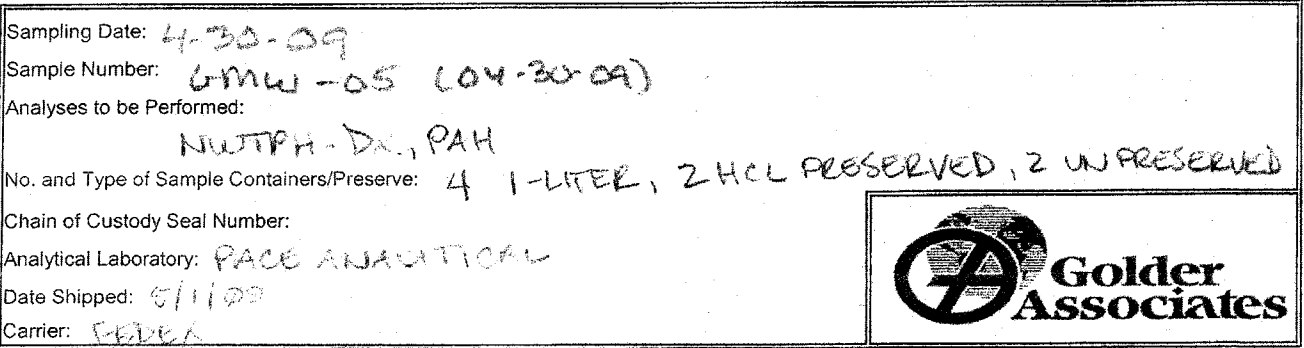 Sampling Date: 4-30-09
Sample Number: GMW-05 (04-30-09)
Analyses to be Performed:
NWTPH-Dx, PAH
No. and Type of Sample Containers/Preserve: 4 1-LITER, 2 HCL PRESERVED, 2 UNPRESERVED
Chain of Custody Seal Number:
Analytical Laboratory: PACE ANALYTICAL
Date Shipped: 5/1/09
Carrier: FEDEX
Golder
Associates